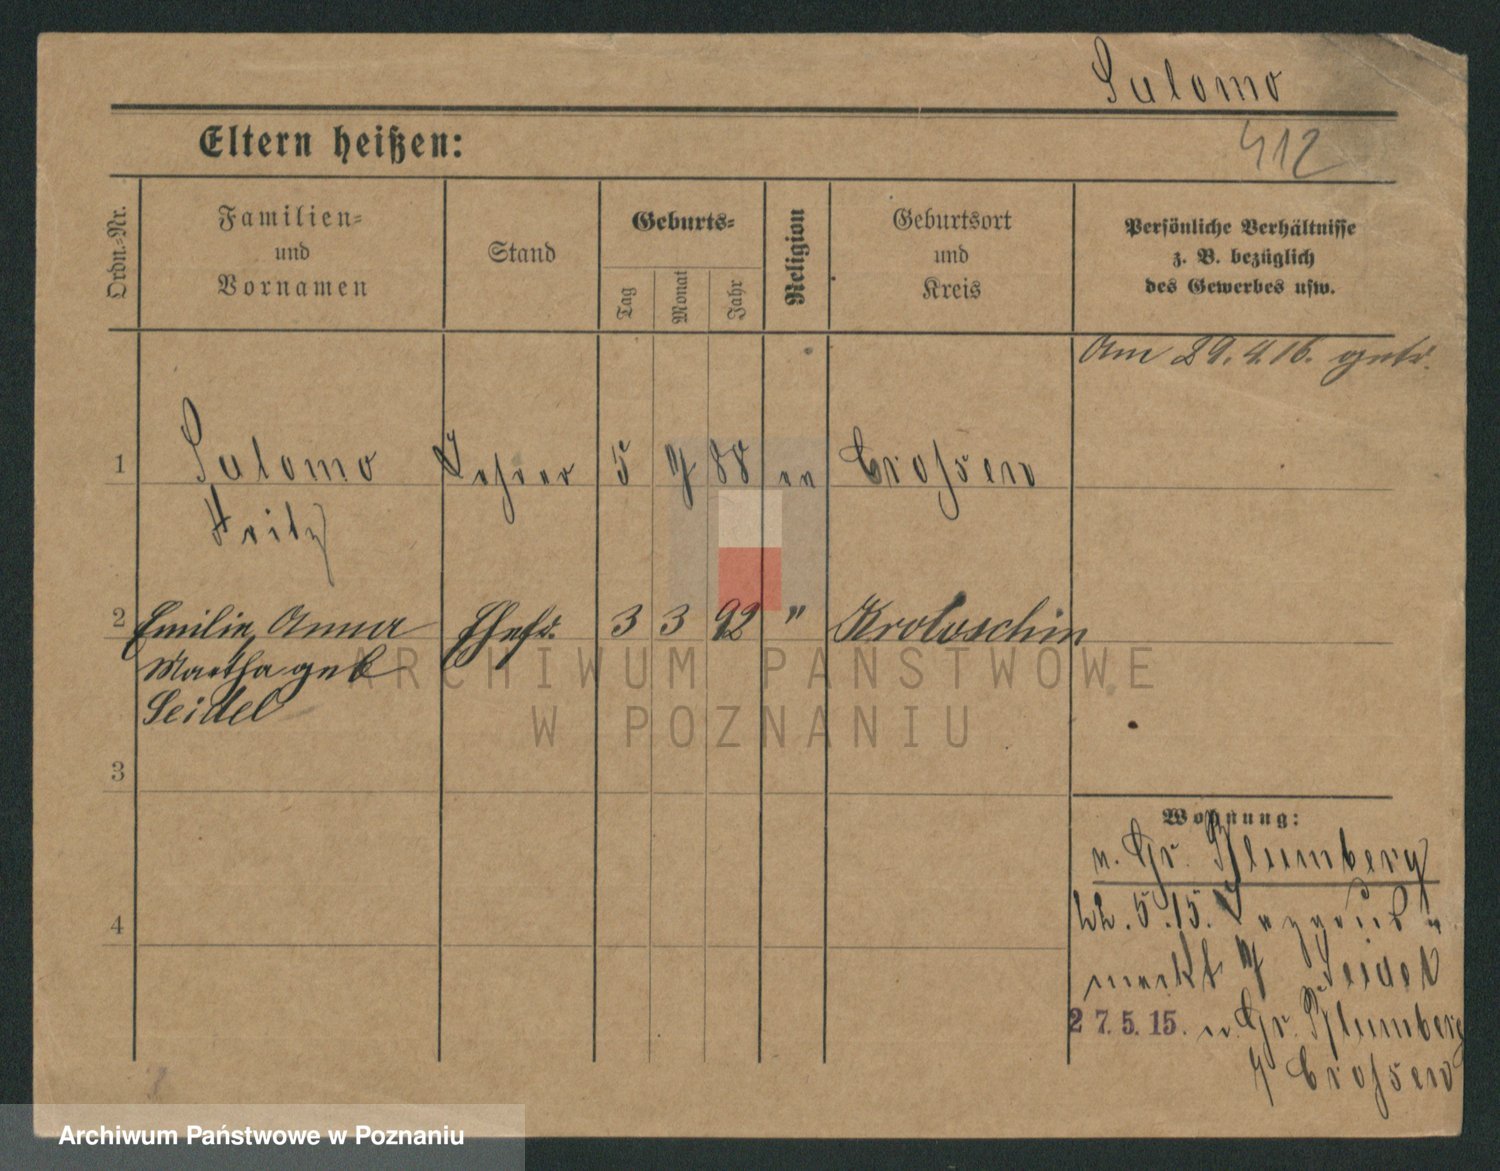 Salomo
412
Eltern heißen:
Ordn.-Nr.
Familien- und Vornamen
Stand
Geburts-
Tag
Monat
Jahr
Religion
Geburtsort und Kreis
Persönliche Verhältnisse
z. B. bezüglich
des Gewerbes usw.
Am 29.4.16. getr.
1 Salomo Lehrer 5 88 ev Crossen
Fritz
2 Emilie, Anna Ehefr. 3 3 92 " Krotoschin
Martha geb
Seidel
3
4
Wohnung:
n. Gr. Blumberg
22.5.15.
markt Seidel
27.5.15. n. Gr. Blumberg
Crossen
ARCHIWUM PAŃSTWOWE
W POZNANIU
Archiwum Państwowe w Poznaniu